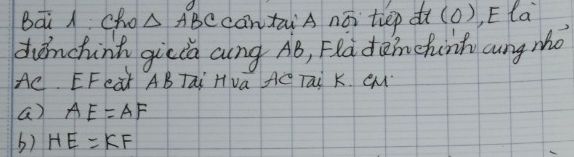 Bài 1: Cho △ ABC cân tại A nội tiếp đt (O), E là
điểm chính giữa cung AB, F là điểm chính cung nhỏ
AC. EF cắt AB Tại H và AC Tại K. CM:
a) AE = AF
b) HE = KF